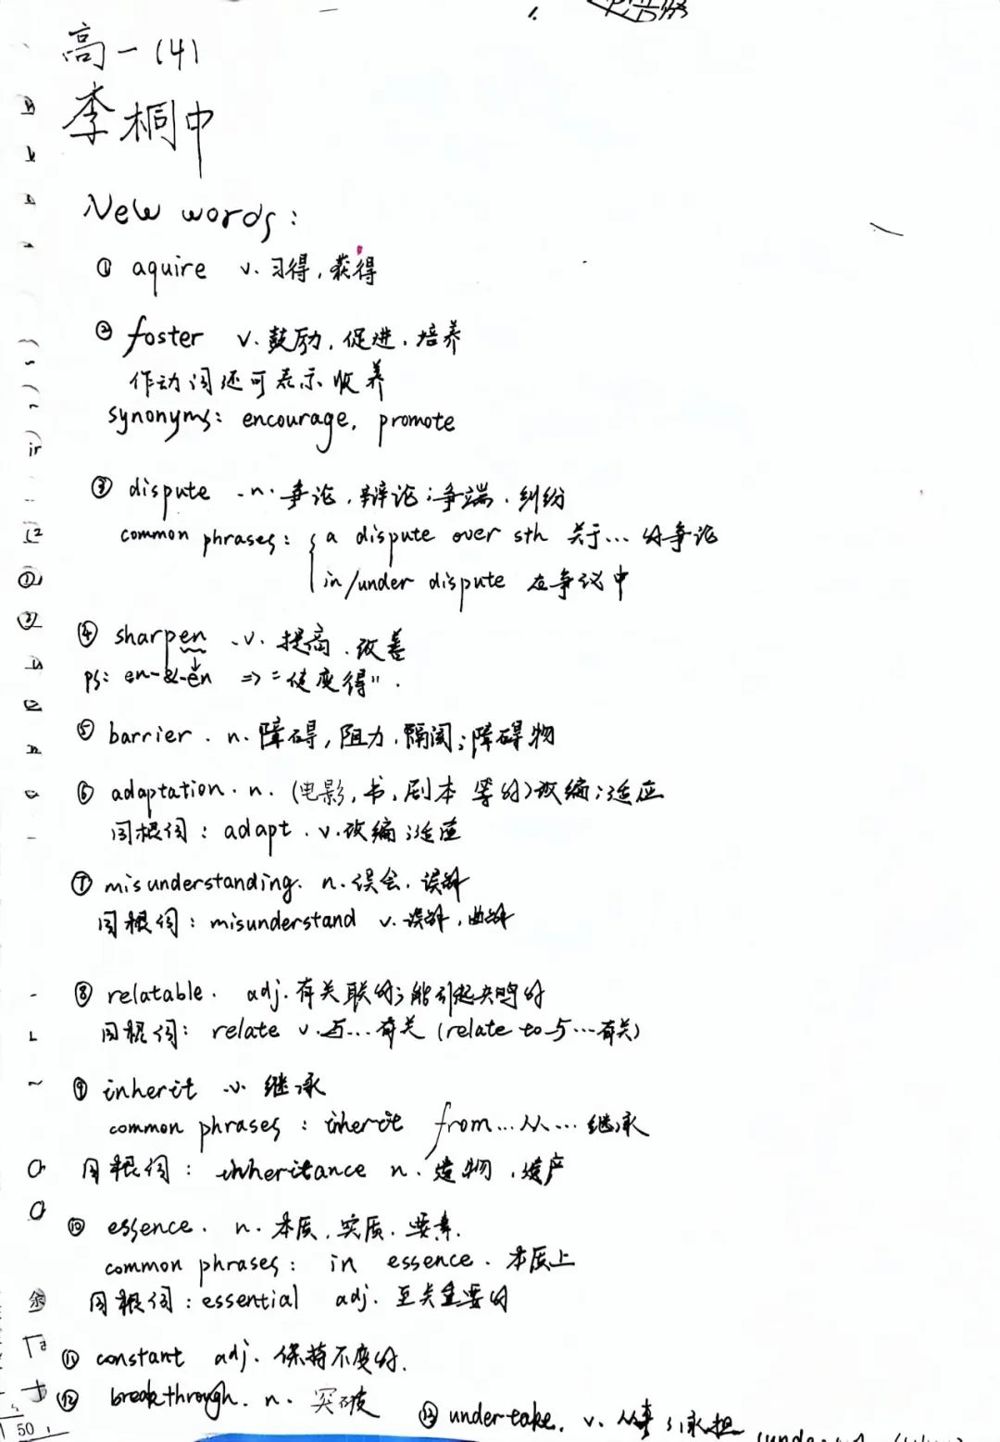 高一(4)
李桐中
New words:
① aquire v. 习得,获得
② foster v. 鼓励,促进,培养
作动词还可表示收养
synonyms: encourage, promote
③ dispute n. 争论,辩论;争端,纠纷
common phrases: { a dispute over sth 关于…的争论
in/under dispute 在争议中
④ sharpen v. 提高,改善
ps: en-&-en => "使变得".
⑤ barrier. n. 障碍,阻力,隔阂;障碍物
⑥ adaptation. n. (电影,书,剧本等的)改编;适应
同根词: adapt. v. 改编;适应
⑦ misunderstanding. n. 误会,误解
同根词: misunderstand v. 误解,曲解
⑧ relatable. adj. 有关联的;能引起共鸣的
同根词: relate v. 与…有关 (relate to 与…有关)
⑨ inherit v. 继承
common phrases: inherit from…从…继承
同根词: inheritance n. 遗物,遗产
⑩ essence. n. 本质,实质,要素.
common phrases: in essence. 本质上
同根词: essential adj. 至关重要的
⑪ constant adj. 保持不变的.
⑫ breakthrough. n. 突破
⑬ undertake. v. 从事;承担
50